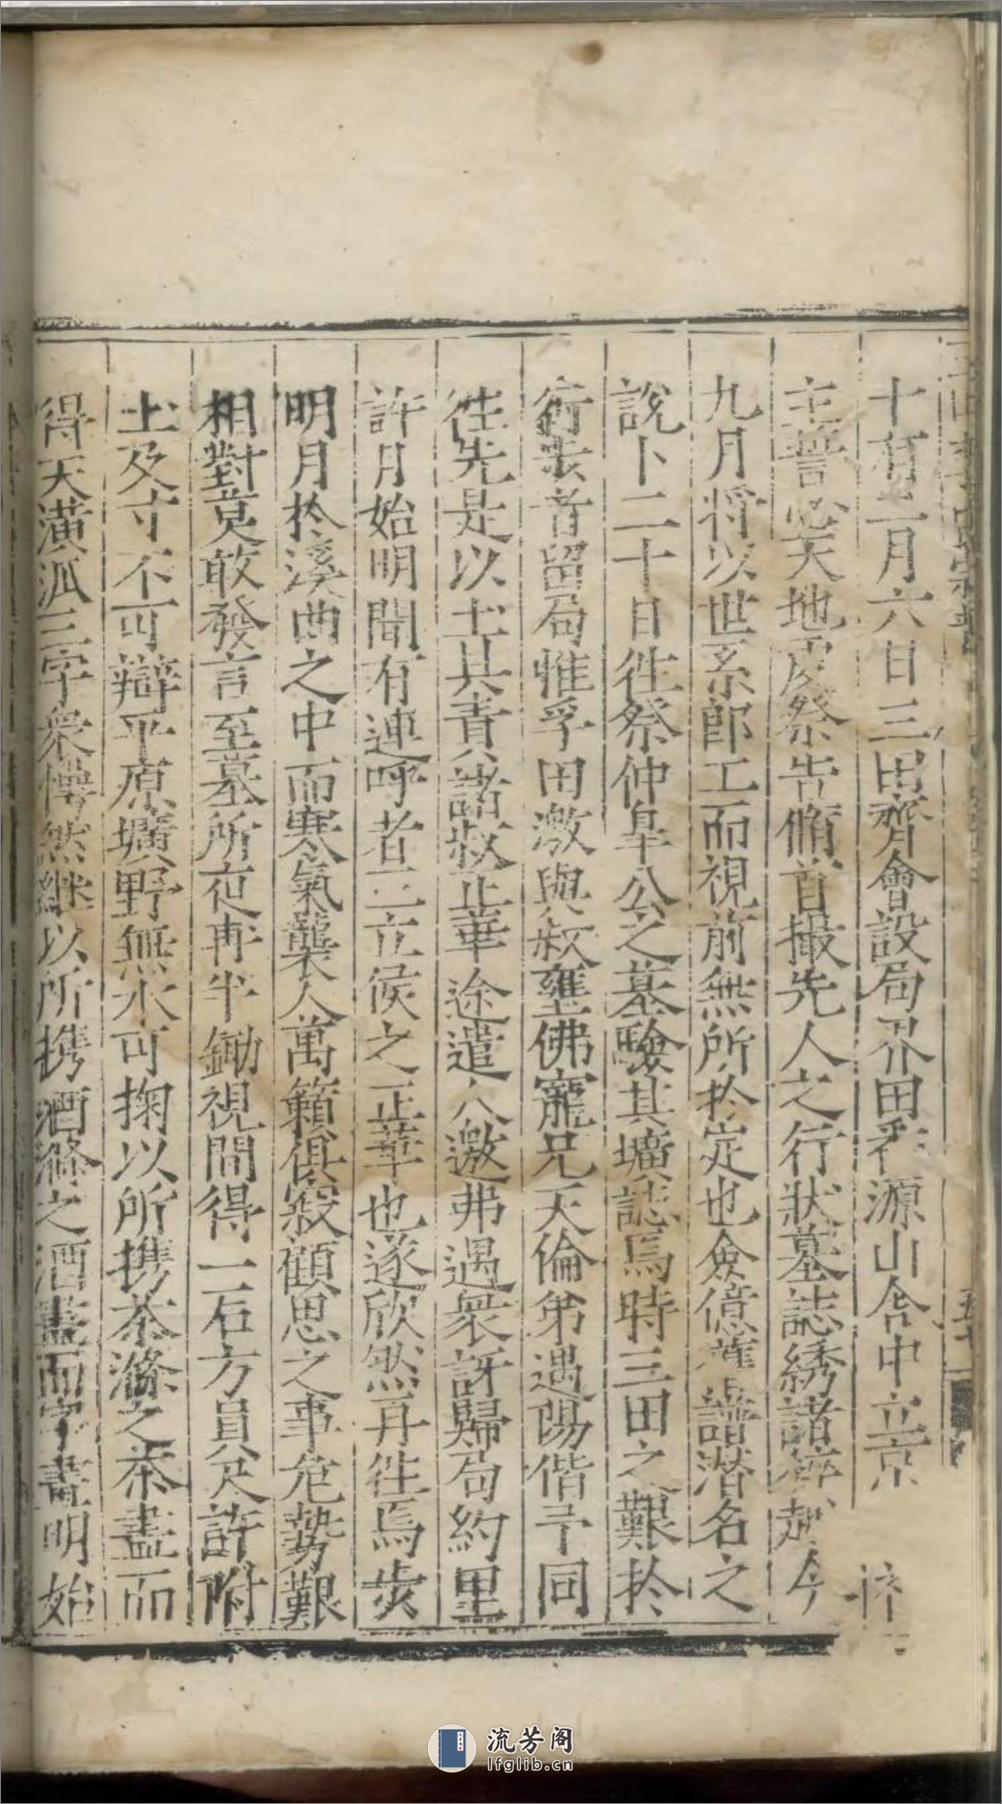 十有一月六日三田齊會設局芥田 源山舍中立京
主誓必天地 祭告脩首撮先人之行狀墓誌綉諸 越今
九月將以世系郎工而視前無所於定也僉億 譜潜名之
說卜二十日徃祭仲皐公之墓驗其壙誌焉時三田之艱於
行 音留局惟孚田激與叙壅佛寵兄天倫弟遇陽偕予同
徃先是以士其責諸叔正華途遣人邀弗遇衆訝歸局約里
許月始明聞有連呼者三立候之正華也遂欣然再徃焉步
明月於溪曲之中而寒氣襲人萬籟俱寂顧思之事危勢艱
相對莫敢發言至墓所夜再半鋤視間得一石方員尺許附
土及寸不可辯平原壙野無水可掬以所携茶滌之茶盡而
得天潢派三字衆愕然継以所携酒滌之酒盡而字畫明始